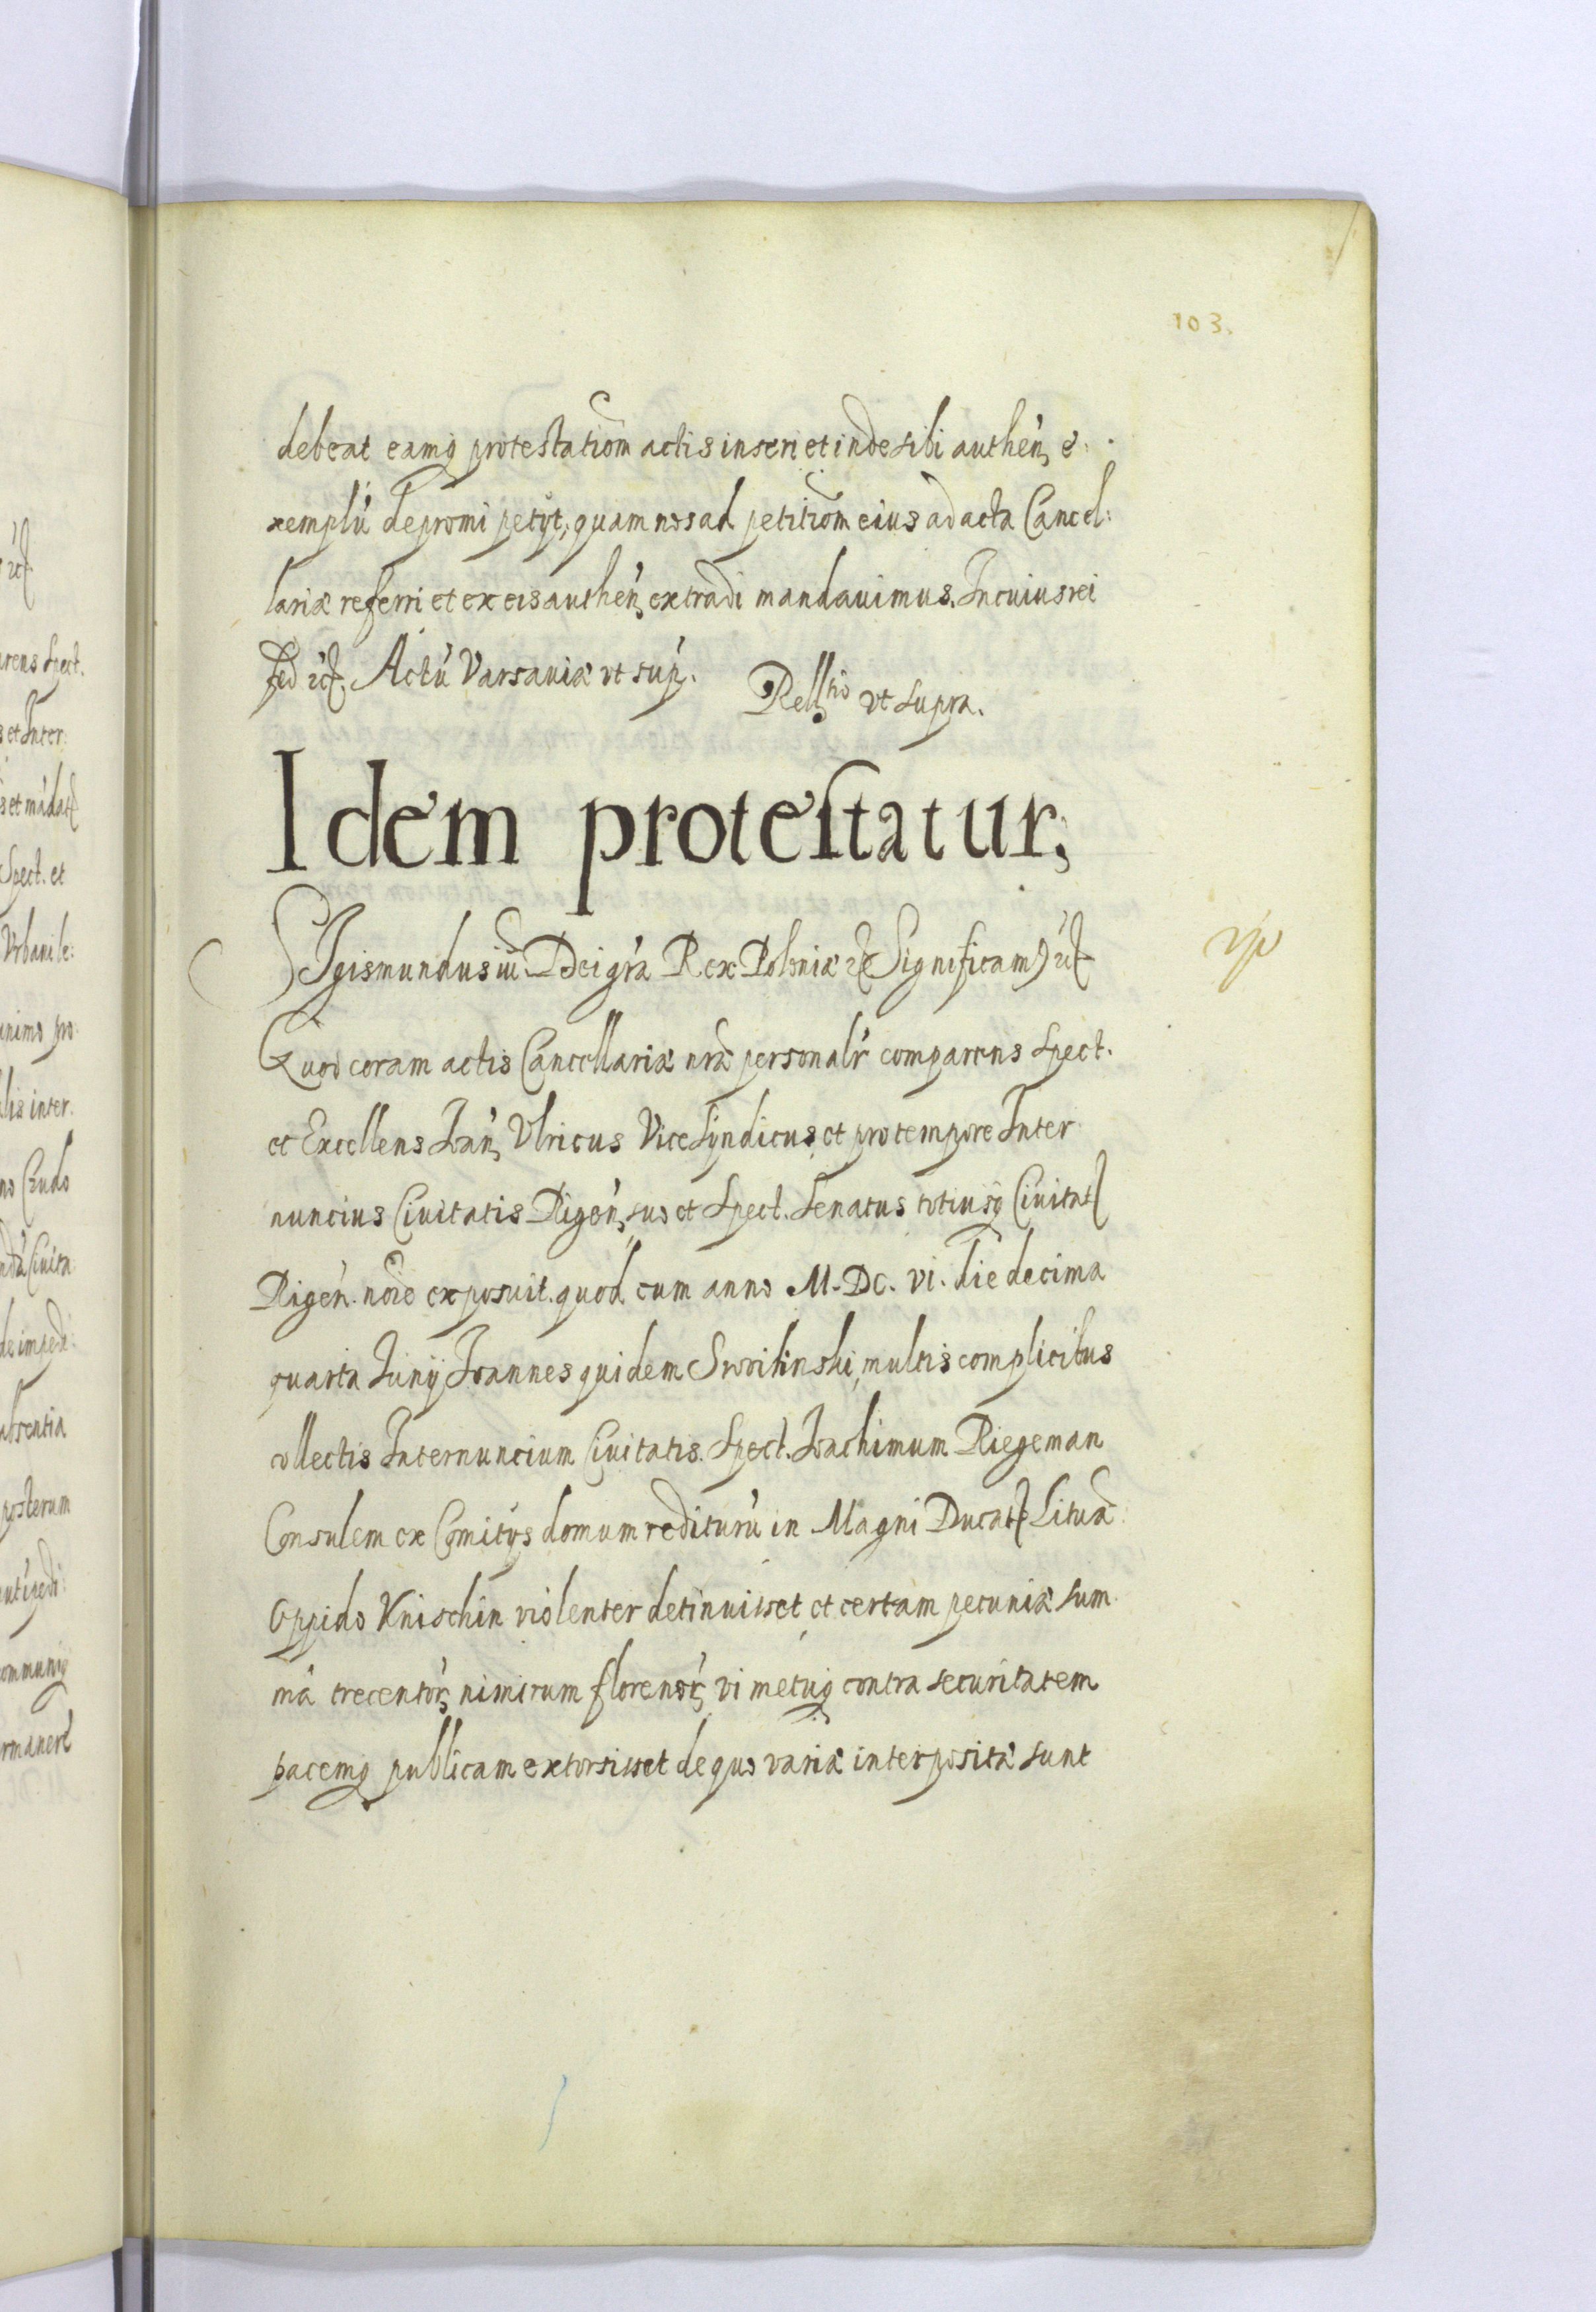 103.
debeat eamq̃ protestatiom̃ actis inseri et inde sibi authén, e
xemplú depromi petÿt, quam nos ad petitiom̃ eius ad acta Cancel:
lariæ referri et ex eis authén, extradi mandauimus. In cuius rei
fed etc. Actú Varsauiæ vt sup.
Relltio vt supra.
Idem protestatur,
SIgismundus iii Dei grá Rex Poloniæ etc Significam9 etc
Quod coram actis Cancellariæ nræ personalr comparens Spect.
et Excellens Ioán, Vlricus Vice Syndicus et pro tempore Inter
nuncius Ciuitatis Rigén, suo et Spect. Senatus totiusq̃ Ciuitat
Rigén. noie exposuit. quod cum anno M.DC.VI. die decima
quarta Iunÿ Ioannes quidem multis complicibus
collectis Internuncium Ciuitatis Spect. Ioachimum Riegeman
Consulem ex Comitÿs domum rediturú in Magni Ducat Lituæ
Oppido Knischin violenter detinuisset et certam pecuniæ sum
mâ trecentor, nimirum florenor, vi metuq̃ contra securitatem
pacemq̃ publicam extorsisset de quo variæ interpositæ sunt
arens Spect.
s et Inter:
s et mádat
Spect. et
Vrbani le:
animo pro:
alis inter.
no Cudo
Ciuita:
de imped
absentia
posterum
communiq̃
ermanere